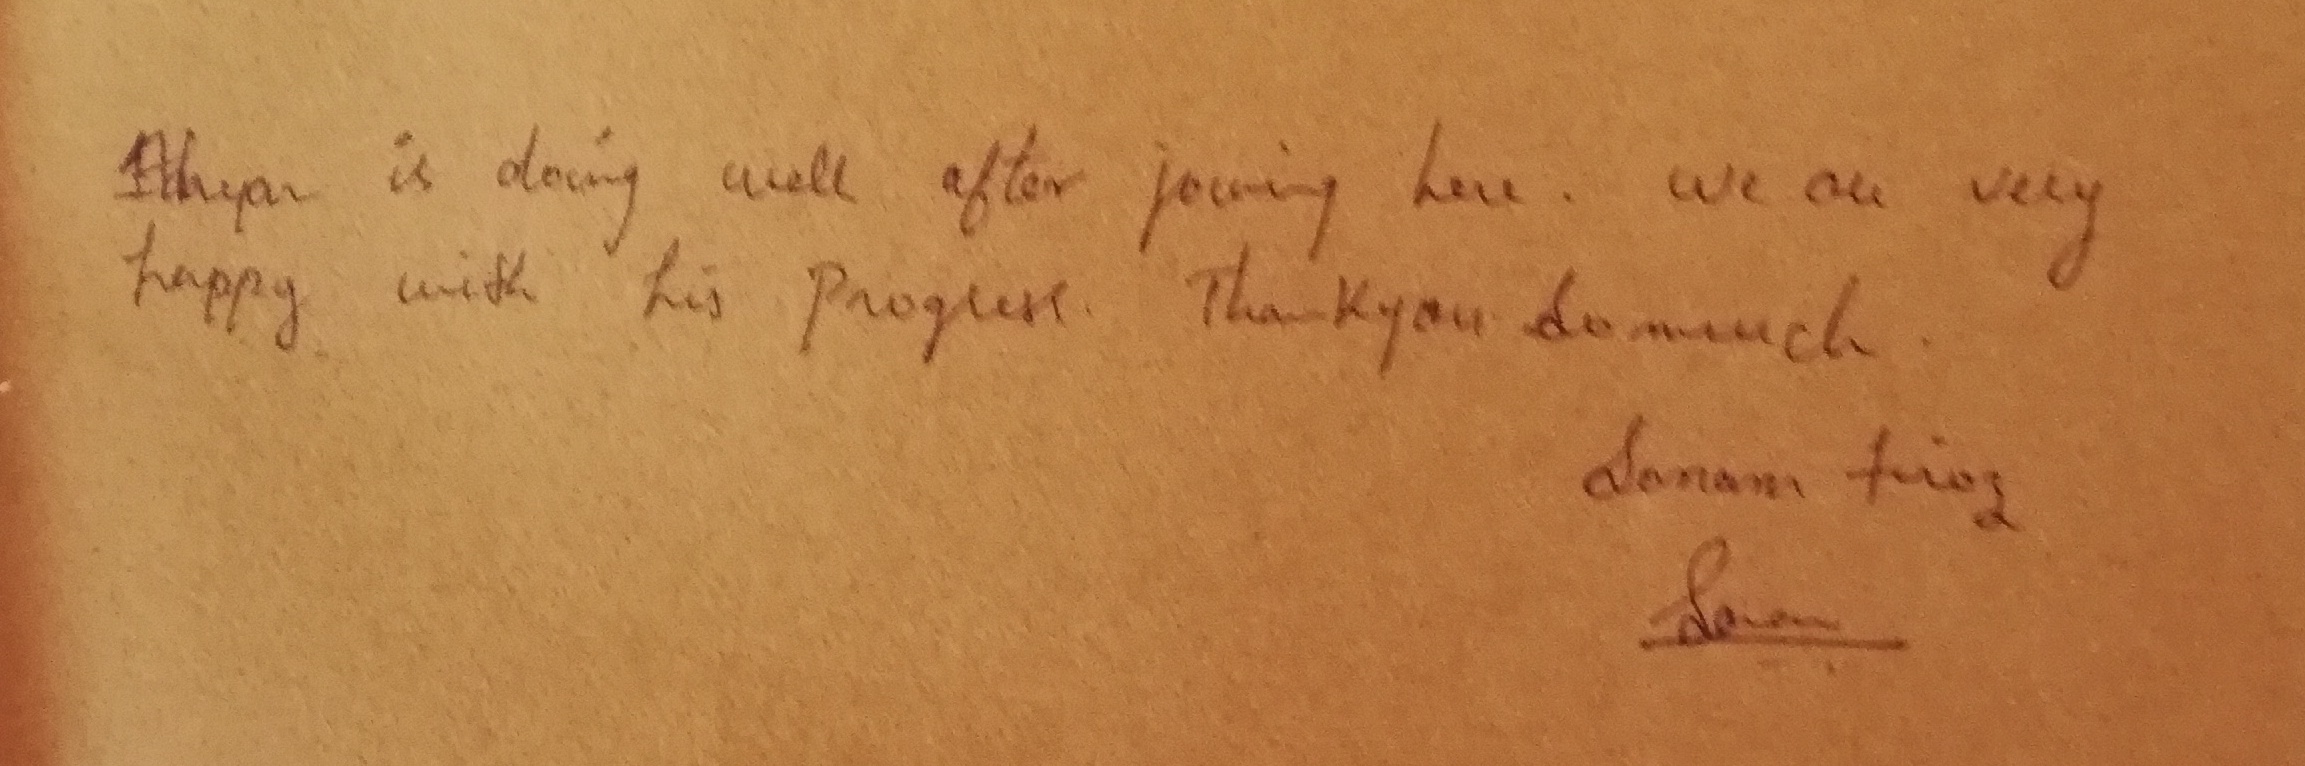 is doing well after joining here. we are very
happy with his Progress. Thankyou so much.
Sanam firoz
Sanam